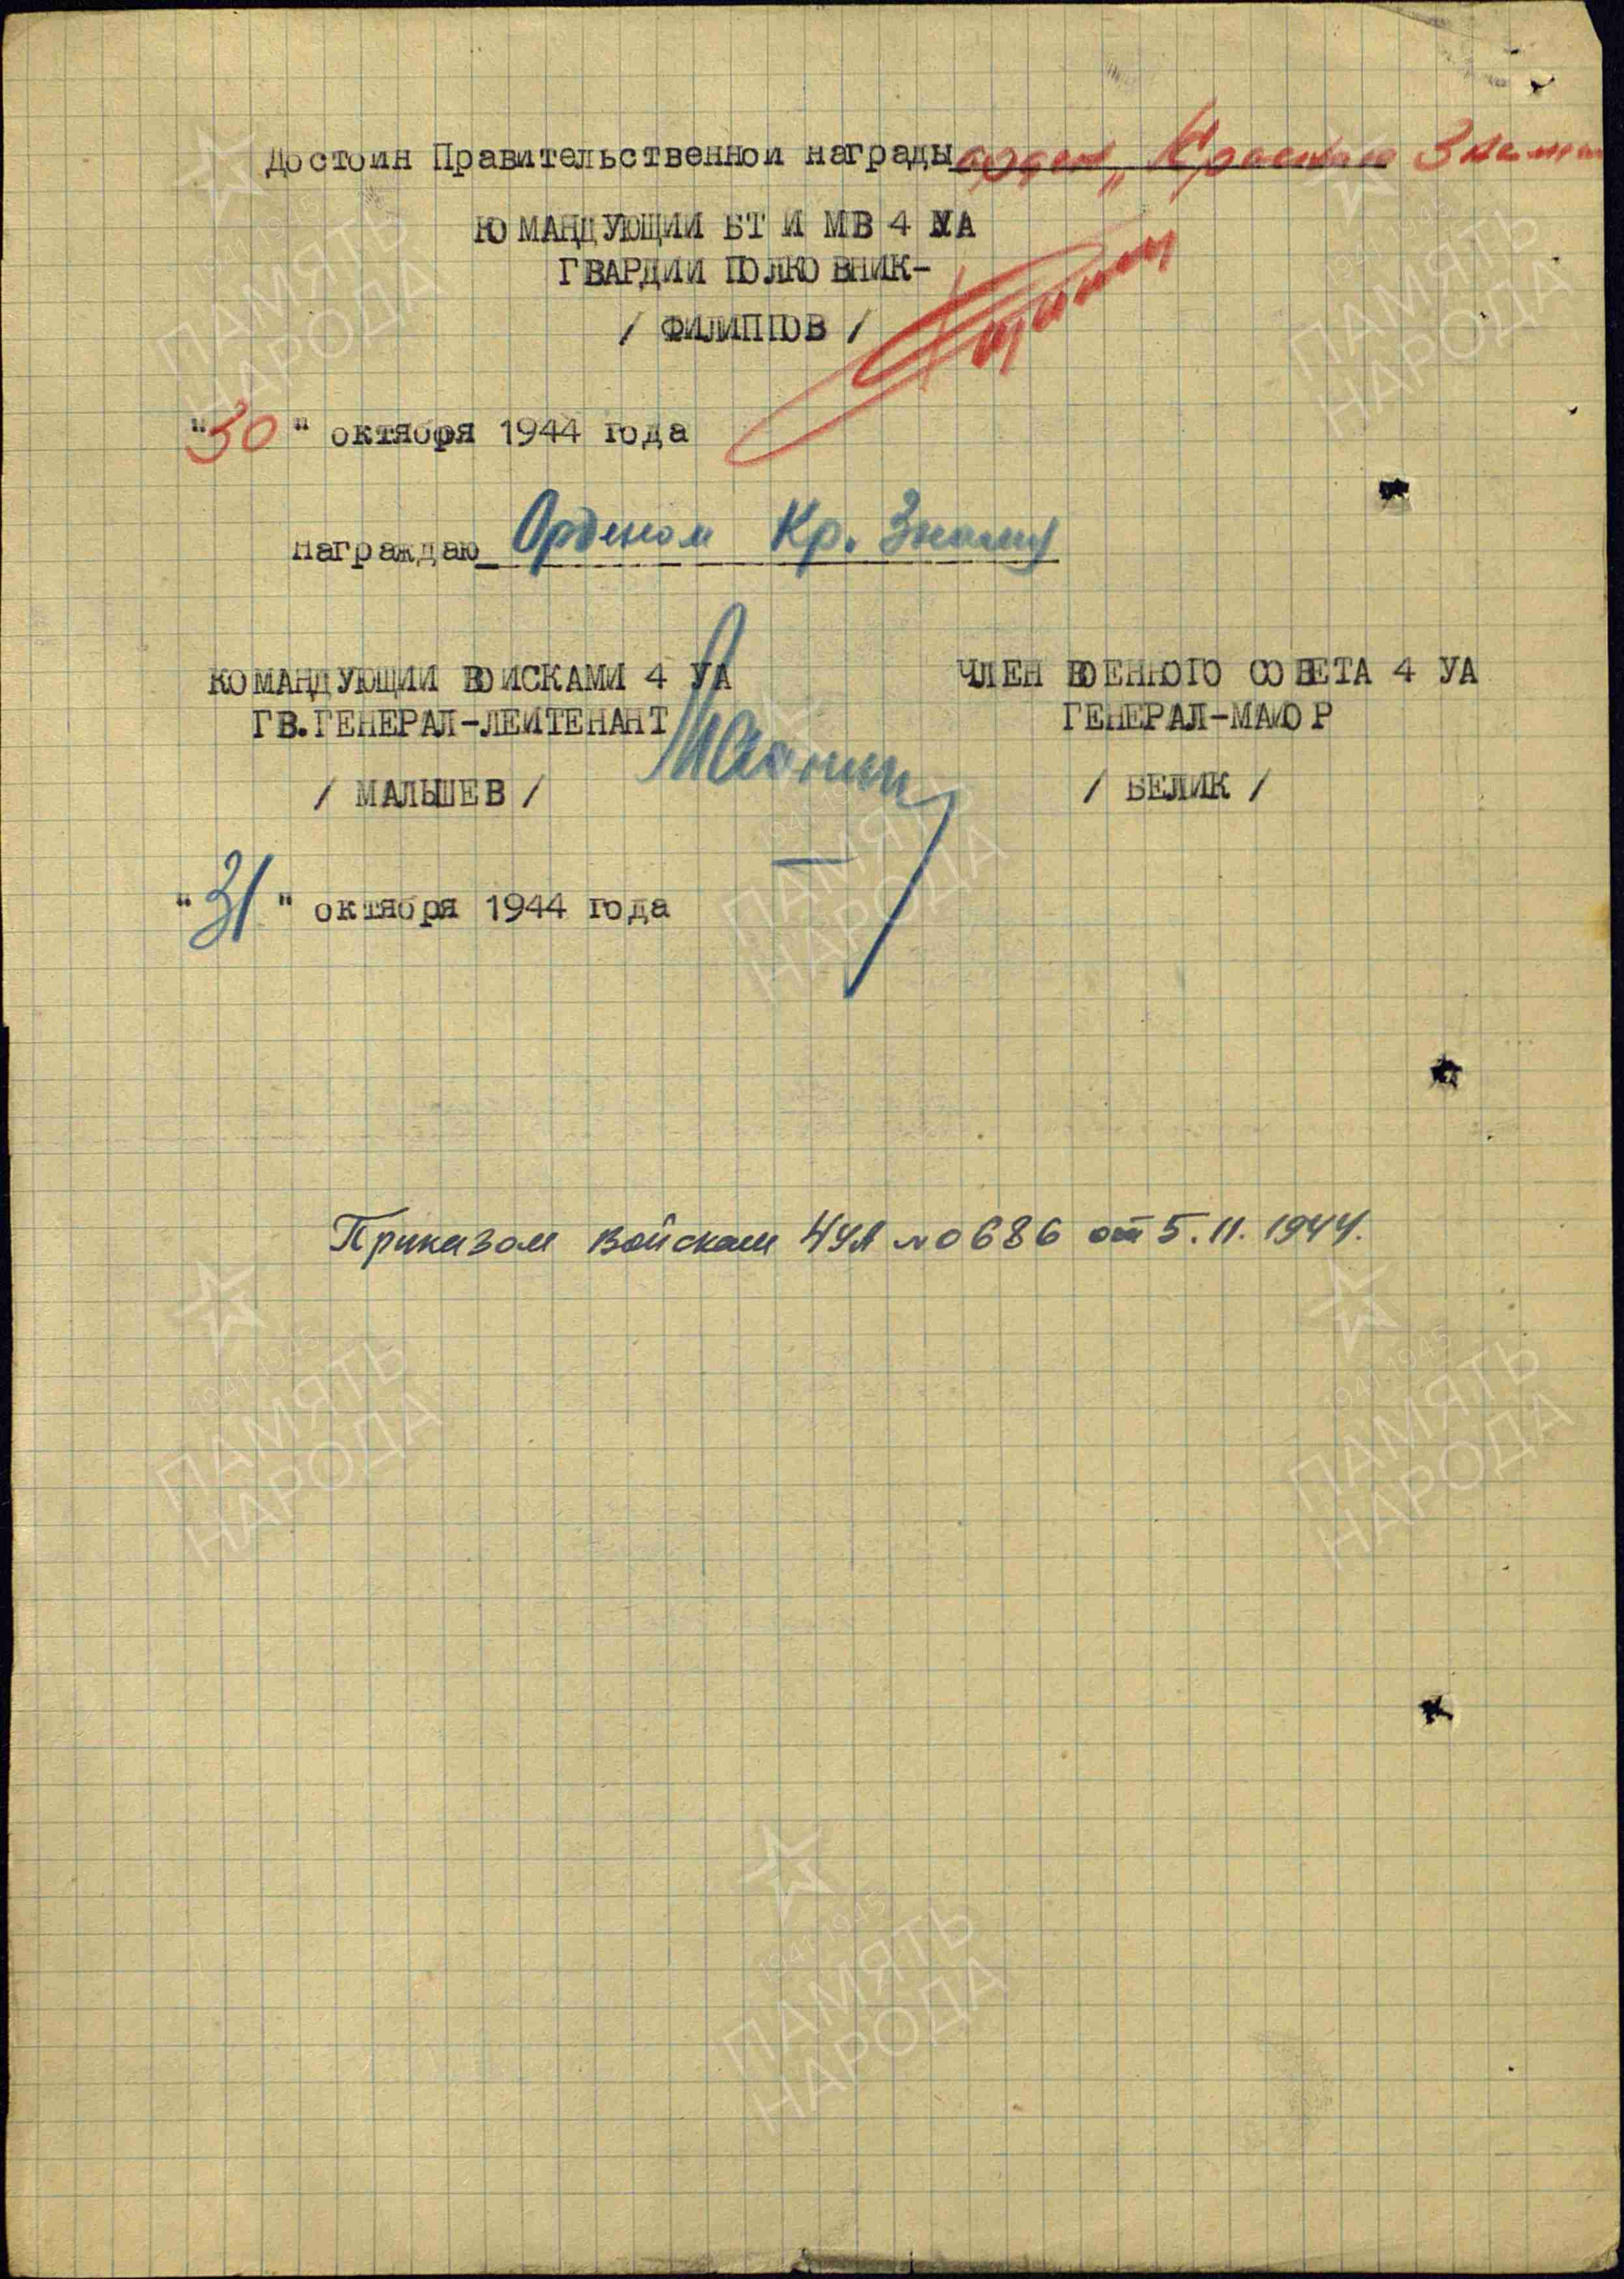 Достоин Правительственной награды орден „Красное Знамя
КОМАНДУЮЩИЙ БТ И МВ 4 УА
ГВАРДИИ ПОЛКОВНИК-
/ ФИЛИППОВ /
"30" октября 1944 года
Награждаю Орденом Кр. Знамя
КОМАНДУЮЩИЙ ВОЙСКАМИ 4 УА
ГВ.ГЕНЕРАЛ-ЛЕЙТЕНАНТ
/ МАЛЫШЕВ /
ЧЛЕН ВОЕННОГО СОВЕТА 4 УА
ГЕНЕРАЛ-МАЙОР
/ БЕЛИК /
"31" октября 1944 года
Приказом войскам 4УА №0686 от 5.11.1944.
1941 1945
ПАМЯТЬ
НАРОДА